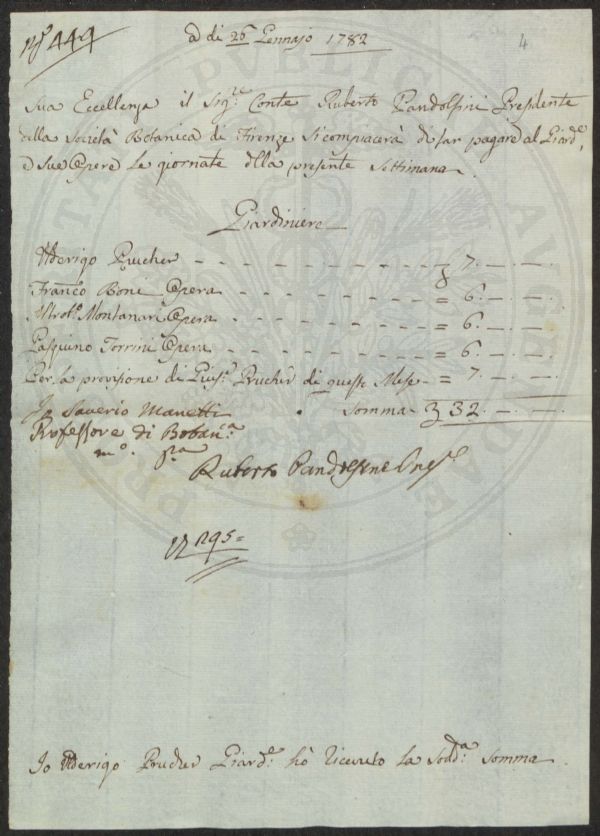 N° 444
a di 26 Gennajo 1782
4
Sua Eccellenza il Sig.e Conte Ruberto Pandolfini Presidente
della Società Botanica di Firenze si compiacerà di far pagare al Giard.e
e sue Opere le giornate della presente Settimana
Giardiniere
Uderigo Prucher - - - - - - - - = 7. - - -
Franc.o Boni Opera - - - - - - - = 6. - - -
Montanari Opera - - - - - - = 6. - - -
Pasquino Torrini Opera - - - - - - = 6. - - -
Per la provisione di Prucher di questo Mese = 7. - - -
Io Saverio Manetti
Somma 32. - - -
Professore di Botan.ca
m.o p.a
Ruberto Pandolfini Pres.e
295 =
Io Uderigo Prucher Giard.e hò ricevuto la Sodd.a Somma
PUBLICAE AUGENDAE